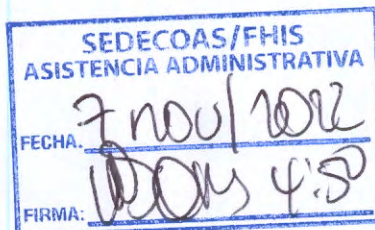 SEDECOAS/FHIS
ASISTENCIA ADMINISTRATIVA
FECHA. 7 nov/2022
FIRMA: 4:50